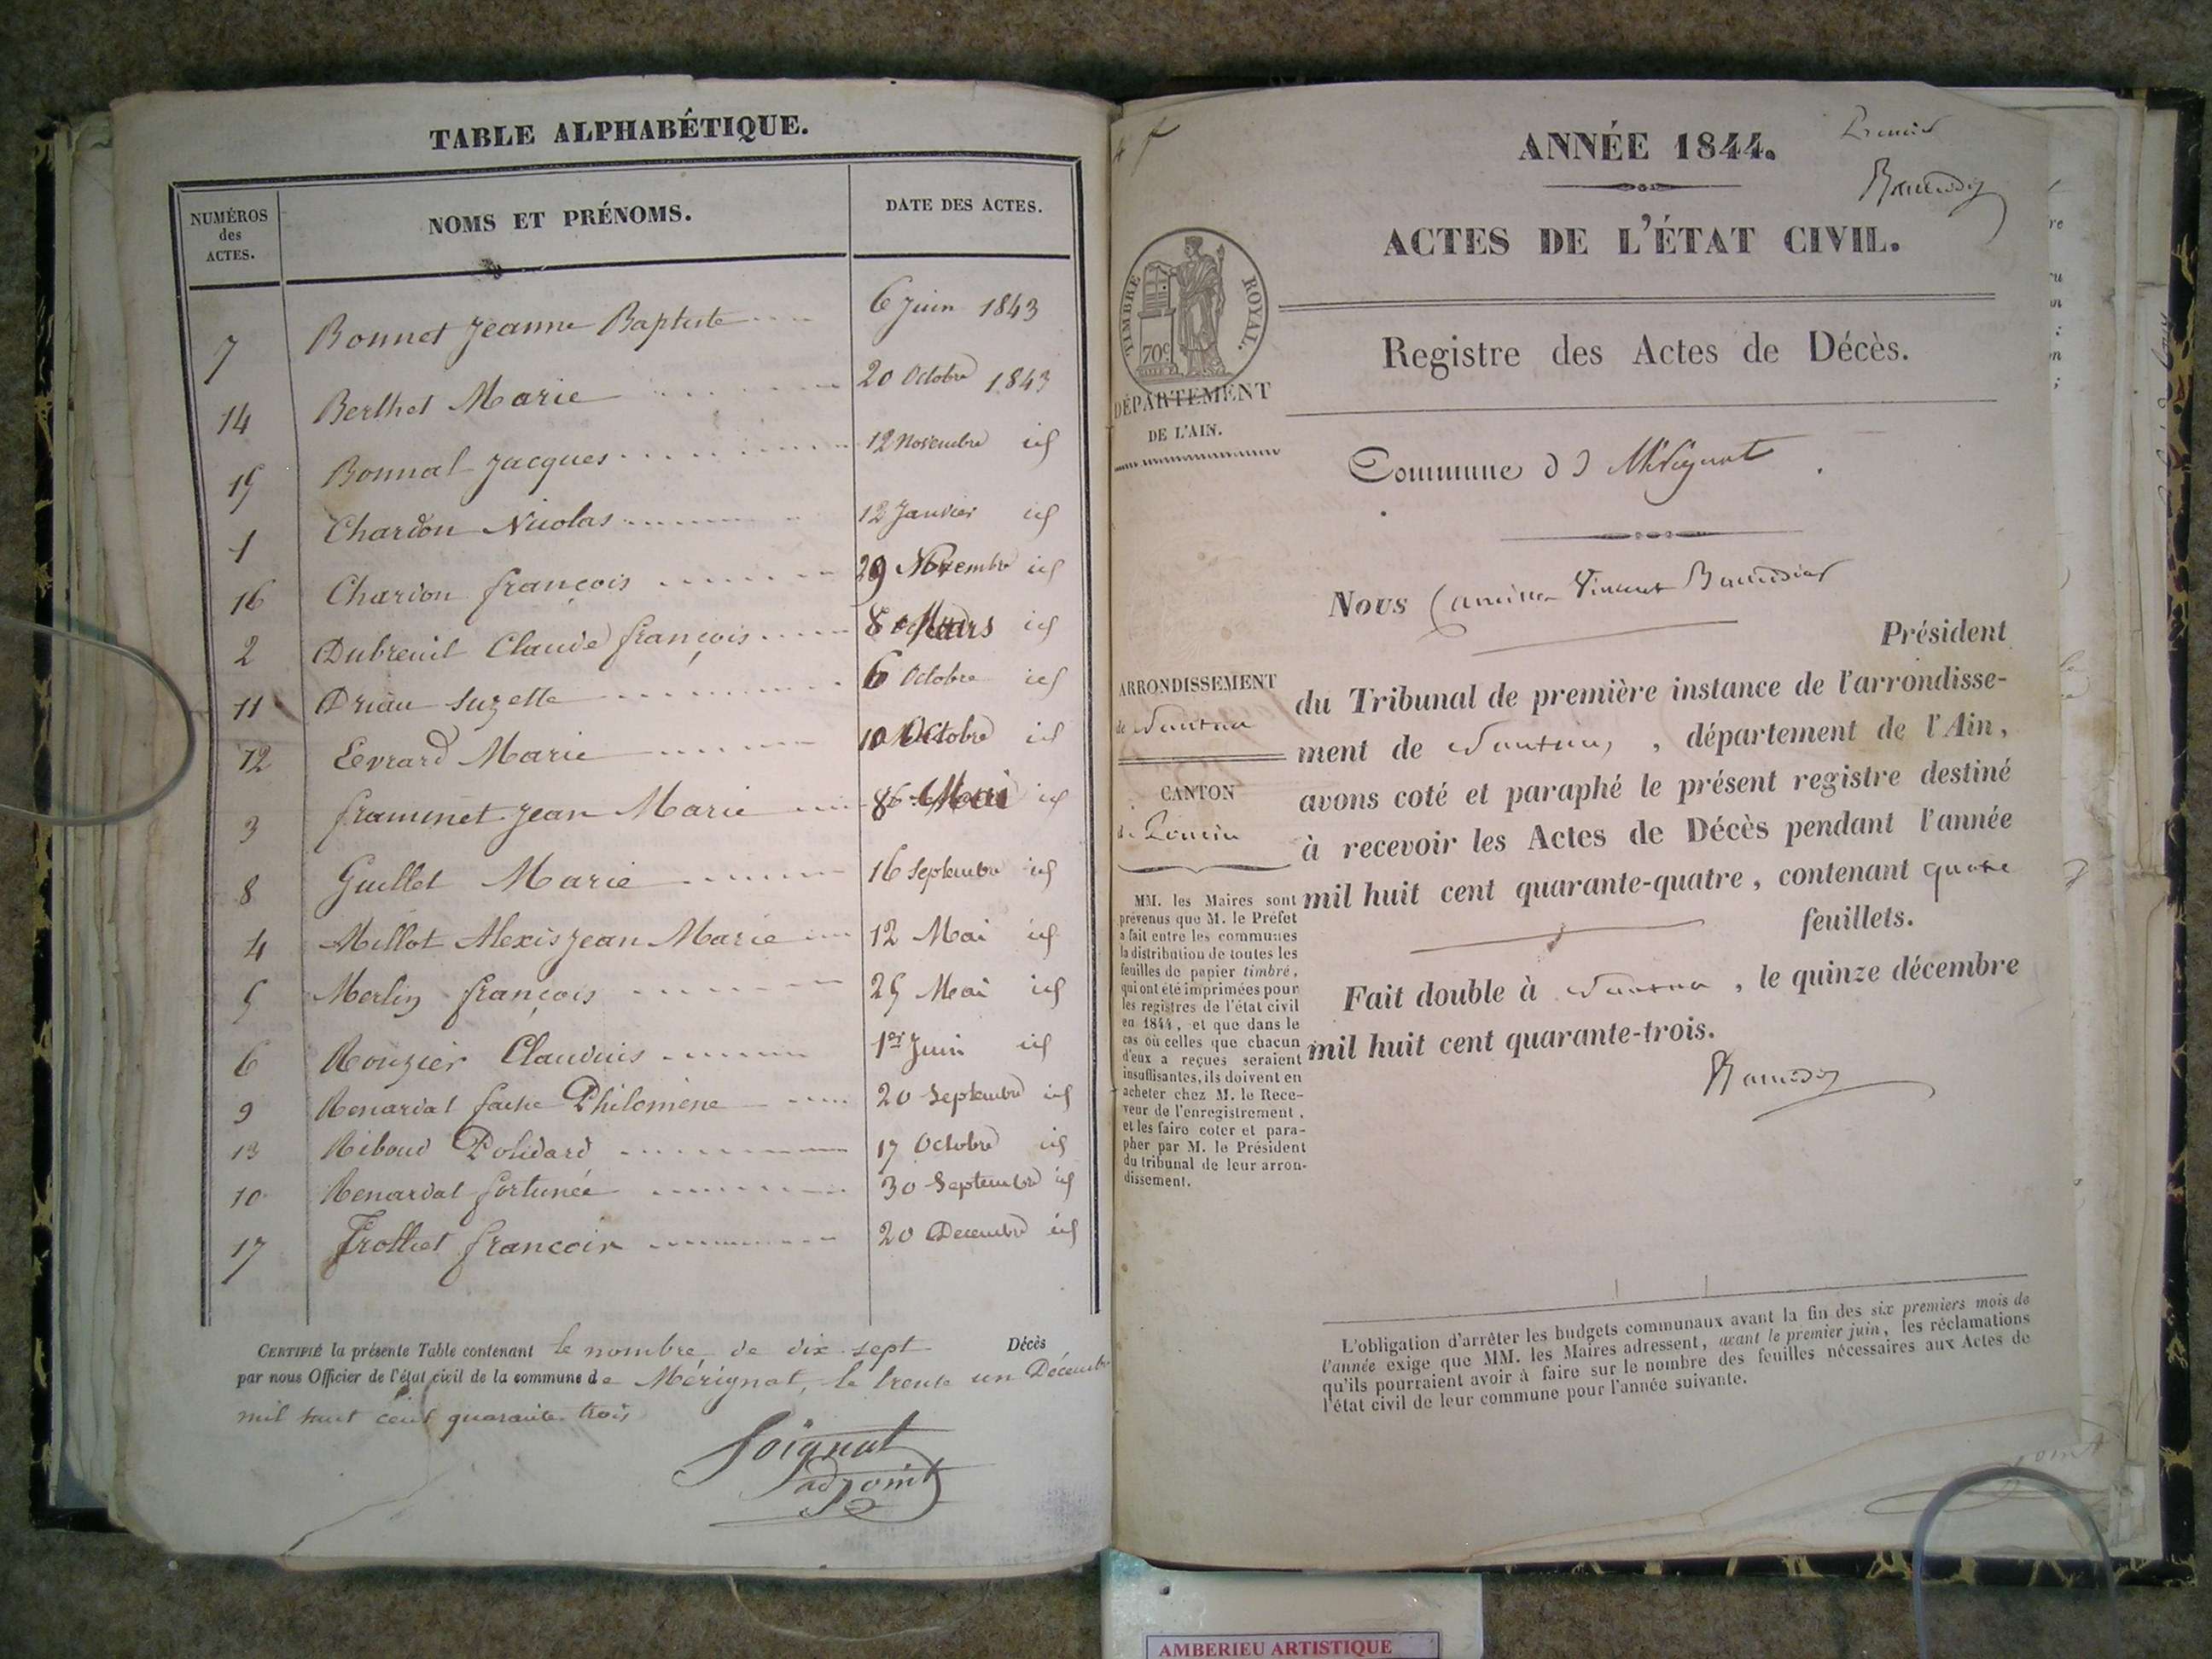 TABLE ALPHABÉTIQUE.
NUMÉROS des ACTES.
NOMS ET PRÉNOMS.
DATE DES ACTES.
7 Bonnet Jeanne Baptiste 6 Juin 1843
14 Berthet Marie 20 Octobre 1843
15 Bonnat Jacques 12 Novembre id
1 Chardon Nicolas 12 Janvier id
16 Chardon françois 29 Novembre id
2 Dubreuil Claude françois 8 Mars id
11 Driau Suzette 6 Octobre id
12 Evrard Marie 10 Octobre id
3 framinet Jean Marie 8 Mai id
8 Guillet Marie 16 Septembre id
4 Millot Alexis Jean Marie 12 Mai id
5 Merlin françois 25 Mai id
6 Rouzier Claudius 1er Juin id
9 Renardat Philomène 20 Septembre id
13 Riboud Polidard 17 Octobre id
10 Renardat fortunée 30 Septembre id
17 Trolliet francois 20 Decembre id
CERTIFIÉ la présente Table contenant le nombre de dix sept Décès
par nous Officier de l'état civil de la commune de Mérignat, le trente un Décembre
mil huit cent quarante trois
Soignat
adjoint
Premier
ANNÉE 1844.
ACTES DE L'ÉTAT CIVIL.
TIMBRE ROYAL.
70c
DÉPARTEMENT
DE L'AIN.
Registre des Actes de Décès.
Commune de Mérignat
Nous Vincent
Président
du Tribunal de première instance de l'arrondisse-
ment de Nantua, département de l'Ain,
avons coté et paraphé le présent registre destiné
à recevoir les Actes de Décès pendant l'année
mil huit cent quarante-quatre, contenant quatre
feuillets.
Fait double à Nantua, le quinze décembre
mil huit cent quarante-trois.
ARRONDISSEMENT
de Nantua
CANTON
de Poncin
MM. les Maires sont
prévenus que M. le Préfet
a fait entre les communes
la distribution de toutes les
feuilles de papier timbré,
qui ont été imprimées pour
les registres de l'état civil
en 1844, et que dans le
cas où celles que chacun
d'eux a reçues seraient
insuffisantes, ils doivent en
acheter chez M. le Rece-
veur de l'enregistrement,
et les faire coter et para-
pher par M. le Président
du tribunal de leur arron-
dissement.
L'obligation d'arrêter les budgets communaux avant la fin des six premiers mois de
l'année exige que MM. les Maires adressent, avant le premier juin, les réclamations
qu'ils pourraient avoir à faire sur le nombre des feuilles nécessaires aux Actes de
l'état civil de leur commune pour l'année suivante.
AMBERIEU ARTISTIQUE